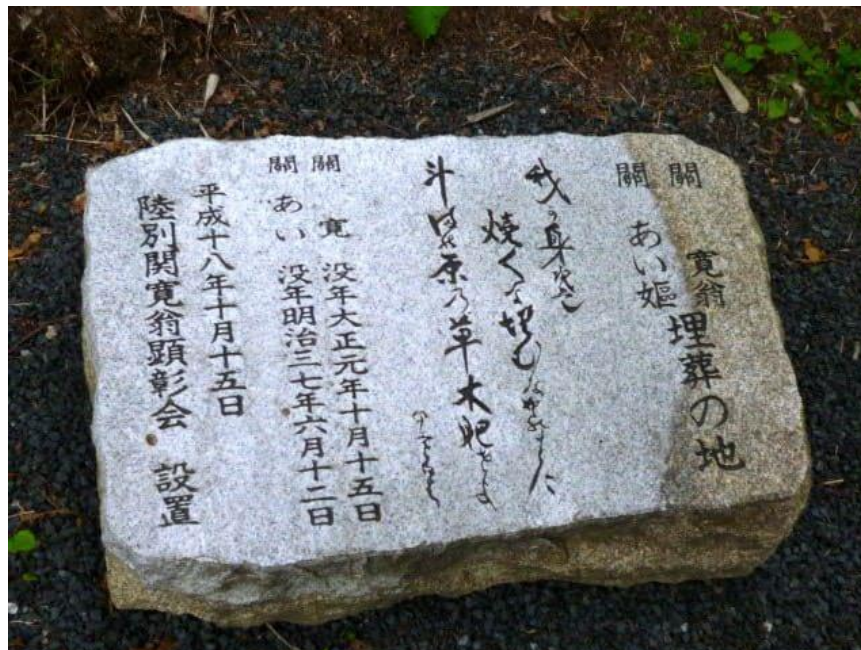 關 寛翁
關 あい嫗
埋葬の地
我か身をは
焼くな埋むな
斗満の原乃草木肥せよ
關 寛 没年大正元年十月十五日
關 あい 没年明治三七年六月十二日
平成十八年十月十五日
陸別関寛翁顕彰会 設置